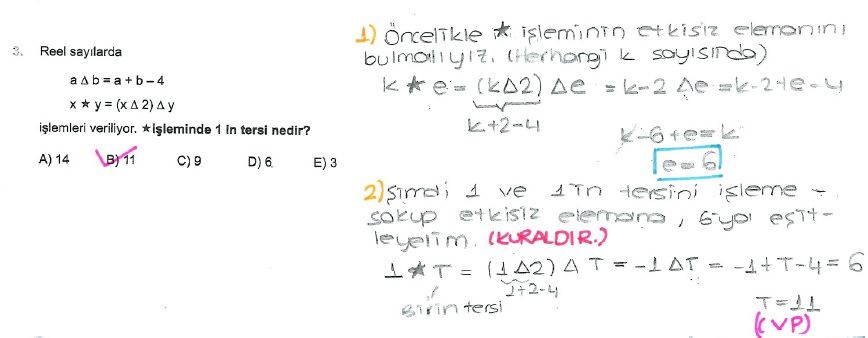 3. Reel sayılarda
a Δ b = a + b – 4
x ★ y = (x Δ 2) Δ y
işlemleri veriliyor. ★işleminde 1 in tersi nedir?
A) 14 B) 11 C) 9 D) 6 E) 3
1) Öncelikle ★ işleminin etkisiz elemanını
bulmalıyız. (Herhangi k sayısında)
k ★ e = (kΔ2) Δe = k-2 Δe = k-2+e-4
k+2-4
k-6+e=k
e=6
2) Şimdi 1 ve 1'in tersini işleme
sokup etkisiz elemana, 6'ya eşit-
leyelim. (KURALDIR.)
1 ★ T = (1 Δ2) Δ T = -1 ΔT = -1+T-4=6
1+2-4
Birin tersi
T=11
(CVP)